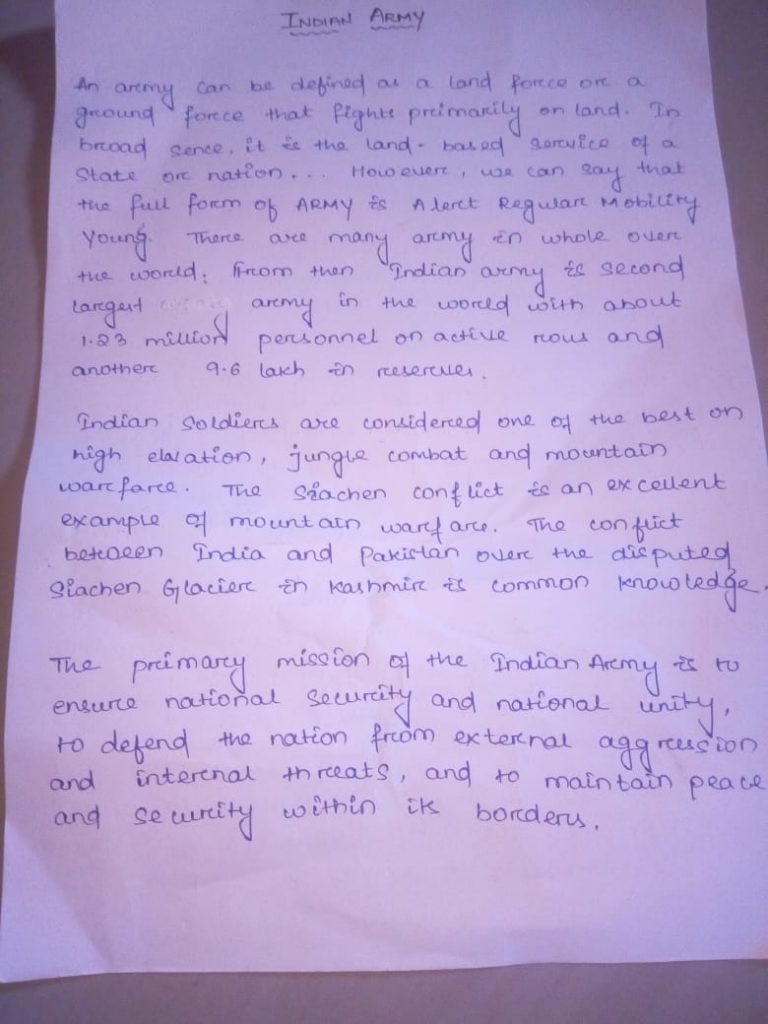 INDIAN ARMY
An army can be defined as a land force or a
ground force that fights primarily on land. In
broad sence, it is the land-based service of a
State or nation... However, we can say that
the full form of ARMY is Alert Regular Mobility
Young. There are many army in whole over
the world; From then Indian army is second
largest army in the world with about
1.23 million personnel on active rous and
another 9.6 lakh in reserves.
Indian Soldiers are considered one of the best on
high elavation, jungle combat and mountain
warfare. The Siachen conflict is an excellent
example of mountain warfare. The conflict
between India and Pakistan over the disputed
Siachen Glacier in Kashmir is common knowledge.
The primary mission of the Indian Army is to
ensure national security and national unity,
to defend the nation from external aggression
and internal threats, and to maintain peace
and security within its borders.